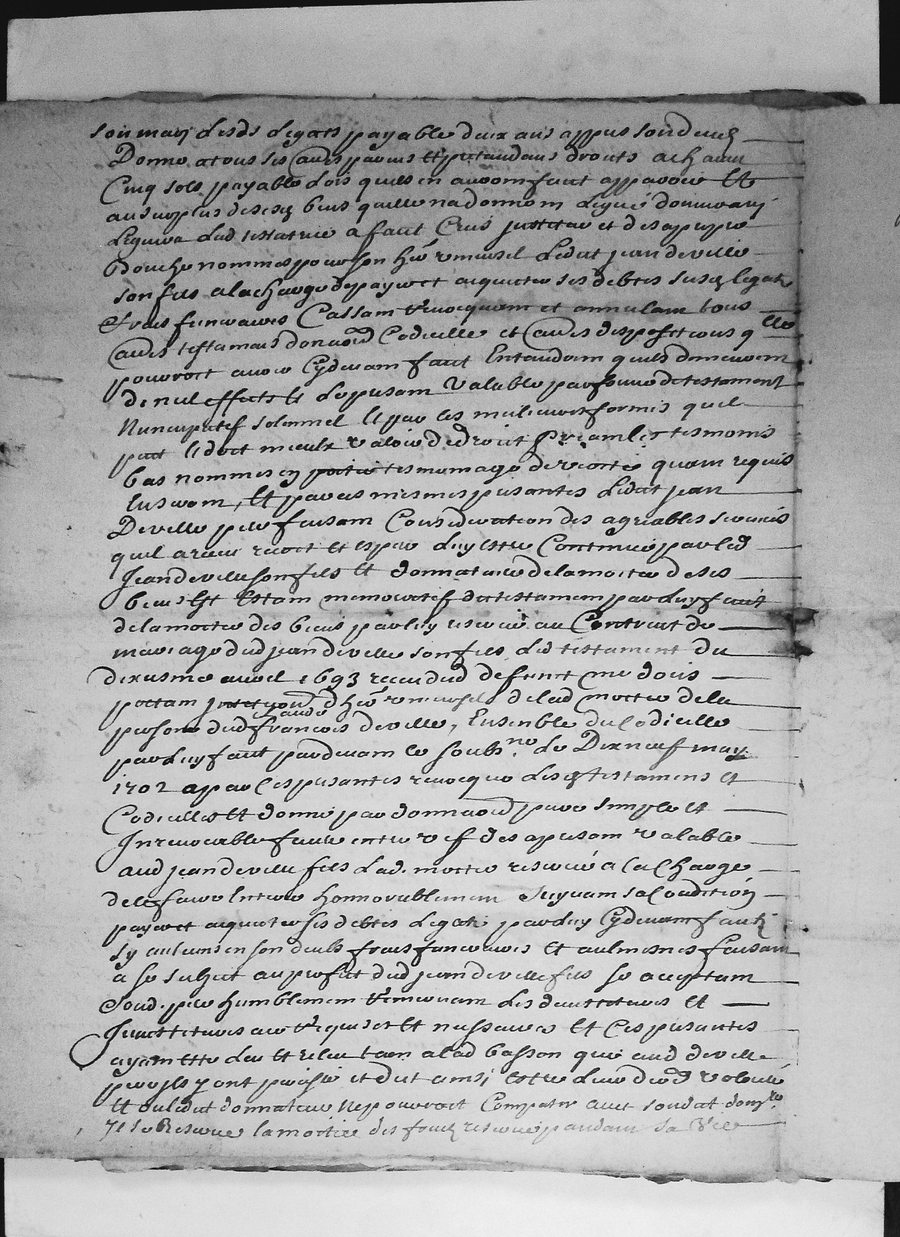 son mary lesds legats payable deux ans appres son decez
Donne a tous ses aues parans et pretandans droits a chacun
Cinq sols payable lors quils en auront faict apparoir Et
au surplus de ses biens quelle na donne ni legué donnera ny
leguera lad testatrice a faict Crée Institue et de sa propre
Bouche nommé pour son her uniuersel ledit jean deville
son fils a la charge de payer et acquiter ses debtes susd legats
frais funeraires Cassant reuocquant et annulant tous
aues testamans donnaon Codicille et aues dispositions qlle
pouuroit auoir Cydeuant faict Entandant quils demeurent
de nul effect et le presant valable par forme de testament
Nuncupatif solennel Et par les meilleures formes quil
peut et doit mieux valoir de droit Priant les tesmoins
bas nommes en porter tesmoniage de verité quant requis
en seront, Et par ces mesmes presantes ledit jean
Deville pere faisant Consideration des agreables seruices
quil a receu recoit et espere luy estre Continué par led
Jean deville son fils Et donnataire de la moitié de ses
biens Et Estant memoratif du testament par luy faict
de la moitié des biens par luy reserué au Contrat de
mariage dud jean deville son fils led testament du
dixiesme auril 1693 receu dud deffunct me dois
portant institution d'her uniuersel de lad moitié de la
persone dud francois deville, Ensemble du Codicille
par luy faict pardeuant le soubs.ne du Dixneuf may
1702 a par ces presantes reuocque lesd testamens et
Codicilles et donne par donnaon pure simple et
Irreuocable faicte entre vifs des a presant valable
aud jean deville fils lad. moitié reserué a la Charge
de le faire Enterrer honnorablement suyuant sa Condition
payer et acquiter ses debtes legats par luy Cydeuant faits
sy aulcuns en sont deubs frais funeraires et aulmosnes faisant
a ce subjet au profit dud jean deville fils ce aceptant
Sond. pere humblement remerciant les deux testateurs et
Institueurs auec requises et necessaires Et Ces presantes
ayant esté leu et releu tant a lad basson que aud deville
pere ils y ont persisté et dit ainsi estre leur dre volonté
Et ou ledit donnateur ne pouuroit Compatir auec sondit donre
Il se Reserue la moitié des fonds reserué pandant sa Vie